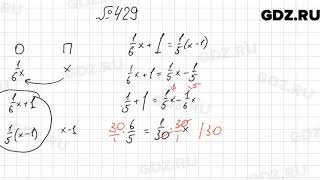 №429
GDZ.RU
О П
1/6x x
1/6x+1
1/5(x-1) x-1
1/6x+1=1/5(x-1)
1/6x+1=1/5x-1/5
1/5+1=1/5x-1/6x
30/1·6/5=1/30·30/1x |30
GDZ.RU
GDZ.RU